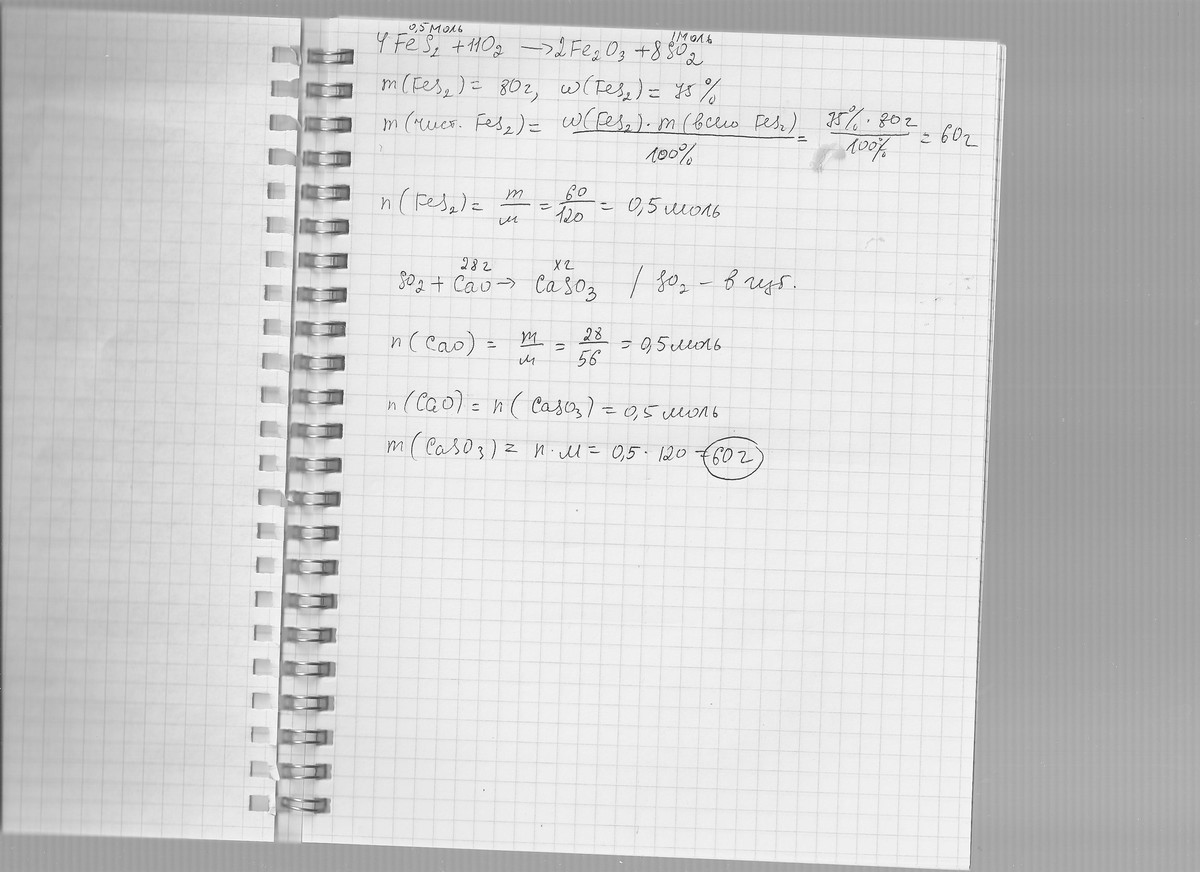 0,5 моль 1 моль
4FeS₂ + 11O₂ → 2Fe₂O₃ + 8SO₂
m(FeS₂) = 80г, ω(FeS₂) = 75%
m(чист. FeS₂) = ω(FeS₂)·m(всего FeS₂)/100% = 75%·80г/100% = 60г
n(FeS₂) = m/M = 60/120 = 0,5 моль
28г xг
SO₂ + CaO → CaSO₃ / SO₂ – в изб.
n(CaO) = m/M = 28/56 = 0,5 моль
n(CaO) = n(CaSO₃) = 0,5 моль
m(CaSO₃) = n·M = 0,5·120 = 60г